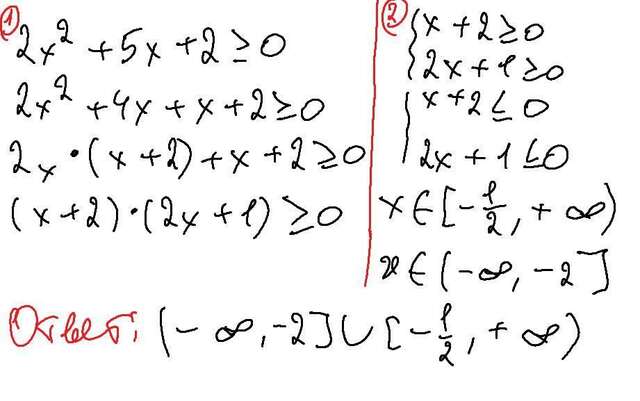 1
2x² + 5x + 2 ≥ 0
2x² + 4x + x + 2 ≥ 0
2x · (x + 2) + x + 2 ≥ 0
(x + 2) · (2x + 1) ≥ 0
2
{ x + 2 ≥ 0
{ 2x + 1 ≥ 0
{ x + 2 ≤ 0
{ 2x + 1 ≤ 0
x ∈ [-1/2, +∞)
x ∈ (-∞, -2]
Ответ: (-∞, -2] ∪ [-1/2, +∞)